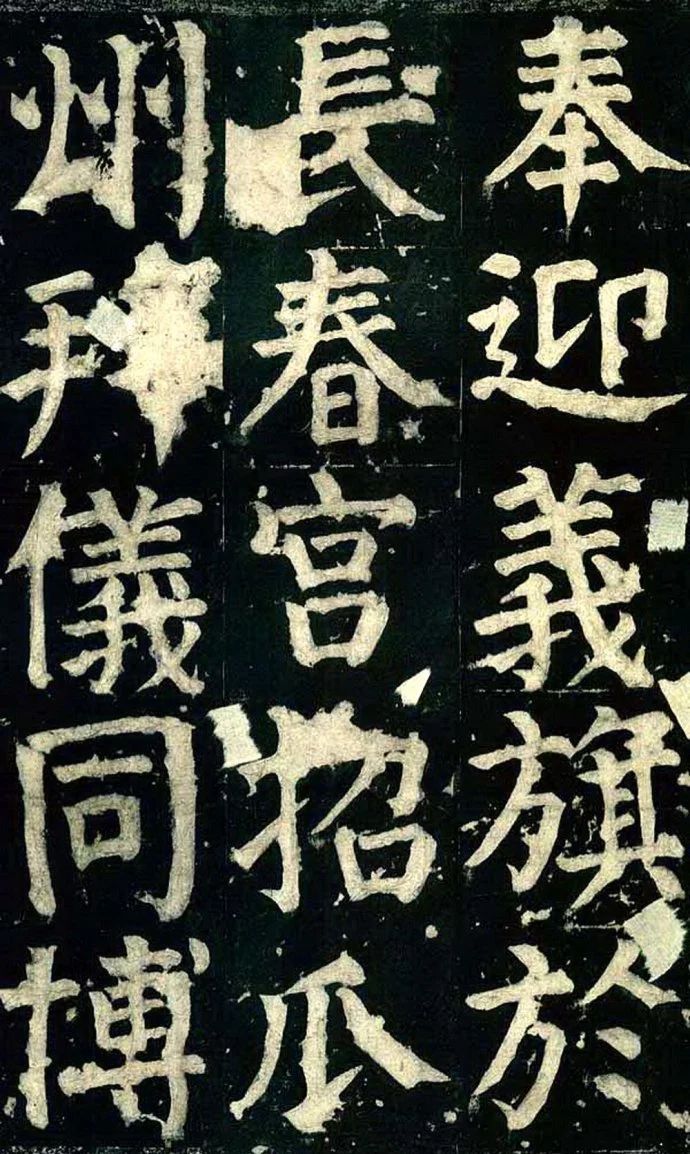 奉迎義旗於
長春宮招瓜
州拜儀同博